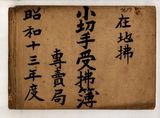 在地拂
小切手受拂簿
専賣局
昭和十三年度